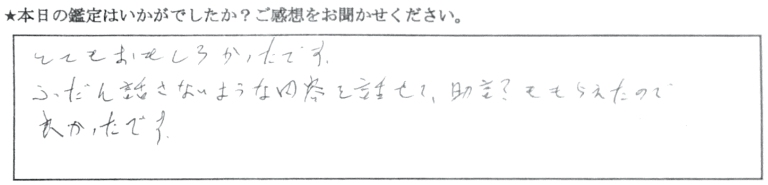 ★本日の鑑定はいかがでしたか？ご感想をお聞かせください。
とてもおもしろかったです。
ふだん話さないような内容を話せて、助言？ももらえたので
良かったです。